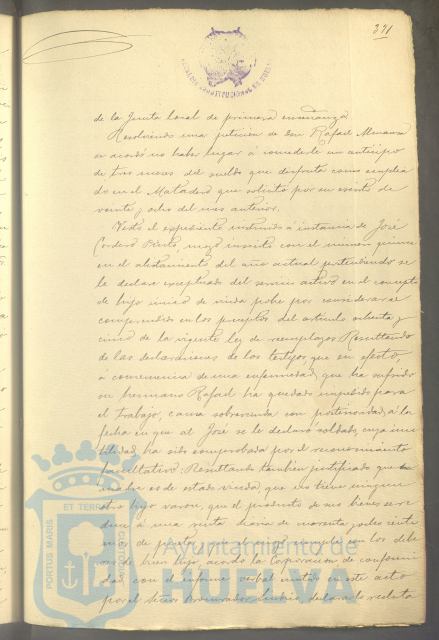 371
de la Junta local de primera enseñanza
Resolviendo una petición de don Rafael
se acordó no haber lugar á concederle un anticipo
de tres meses del sueldo que disfruta como emplea
do en el Matadero que solicitó por su escrito de
veinte y ocho del mes anterior.
Visto el expediente instruido á instancia de José
Cordero mozo inserto con el número
en el alistamiento del año actual pretendiendo se
le declare exceptuado del servicio activo en el concepto
de hijo único de viuda pobre por considerarse
comprendido en los preceptos del artículo ochenta y
cinco de la vigente ley de reemplazos Resultando
de las declaraciones de los testigos, que en efecto,
á consecuencia de una enfermedad que ha sufrido
su hermano Rafael ha quedado impedido para
el trabajo, causa sobrevenida con posterioridad á la
fecha en que al José se le declaró soldado, cuya inu
tilidad ha sido comprobada por el reconocimiento
facultativo. Resultando tambien justificado que su
madre es de estado viuda, que no tiene ningun
otro hijo varon, que el producto de sus bienes se re
duce á una renta diaria de noventa y
de peseta, que el mozo cumple con los debe
res de buen hijo, acordó la Corporacion de conformi
dad con el informe verbal emitido en este acto
por el Señor Procurador Síndico declararlo recluta
PORTUS MARIS
ET TERRAE
CUSTODIA
Ayuntamiento de
HUELVA